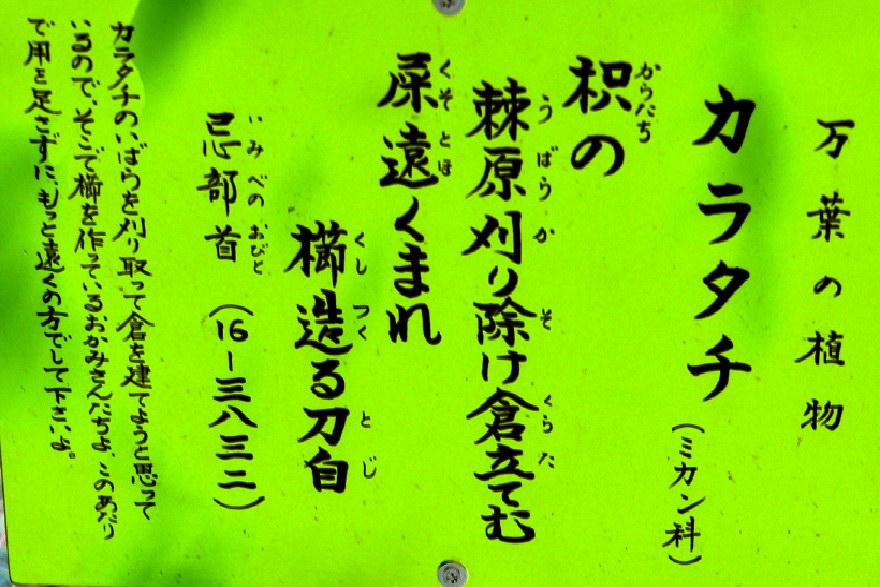 万葉の植物
カラタチ(ミカン科)
からたち
枳の
うばら か そ くらた
棘原刈り除け倉立てむ
くそとほ
屎遠くまれ
くし つく とじ
櫛造る刀自
いみべのおびと
忌部首 (16-三八三二)
カラタチのいばらを刈り取って倉を建てようと思って
いるので、そこで櫛を作っているおかみさんたちよ、このあたり
で用を足さずに、もっと遠くの方でして下さいよ。